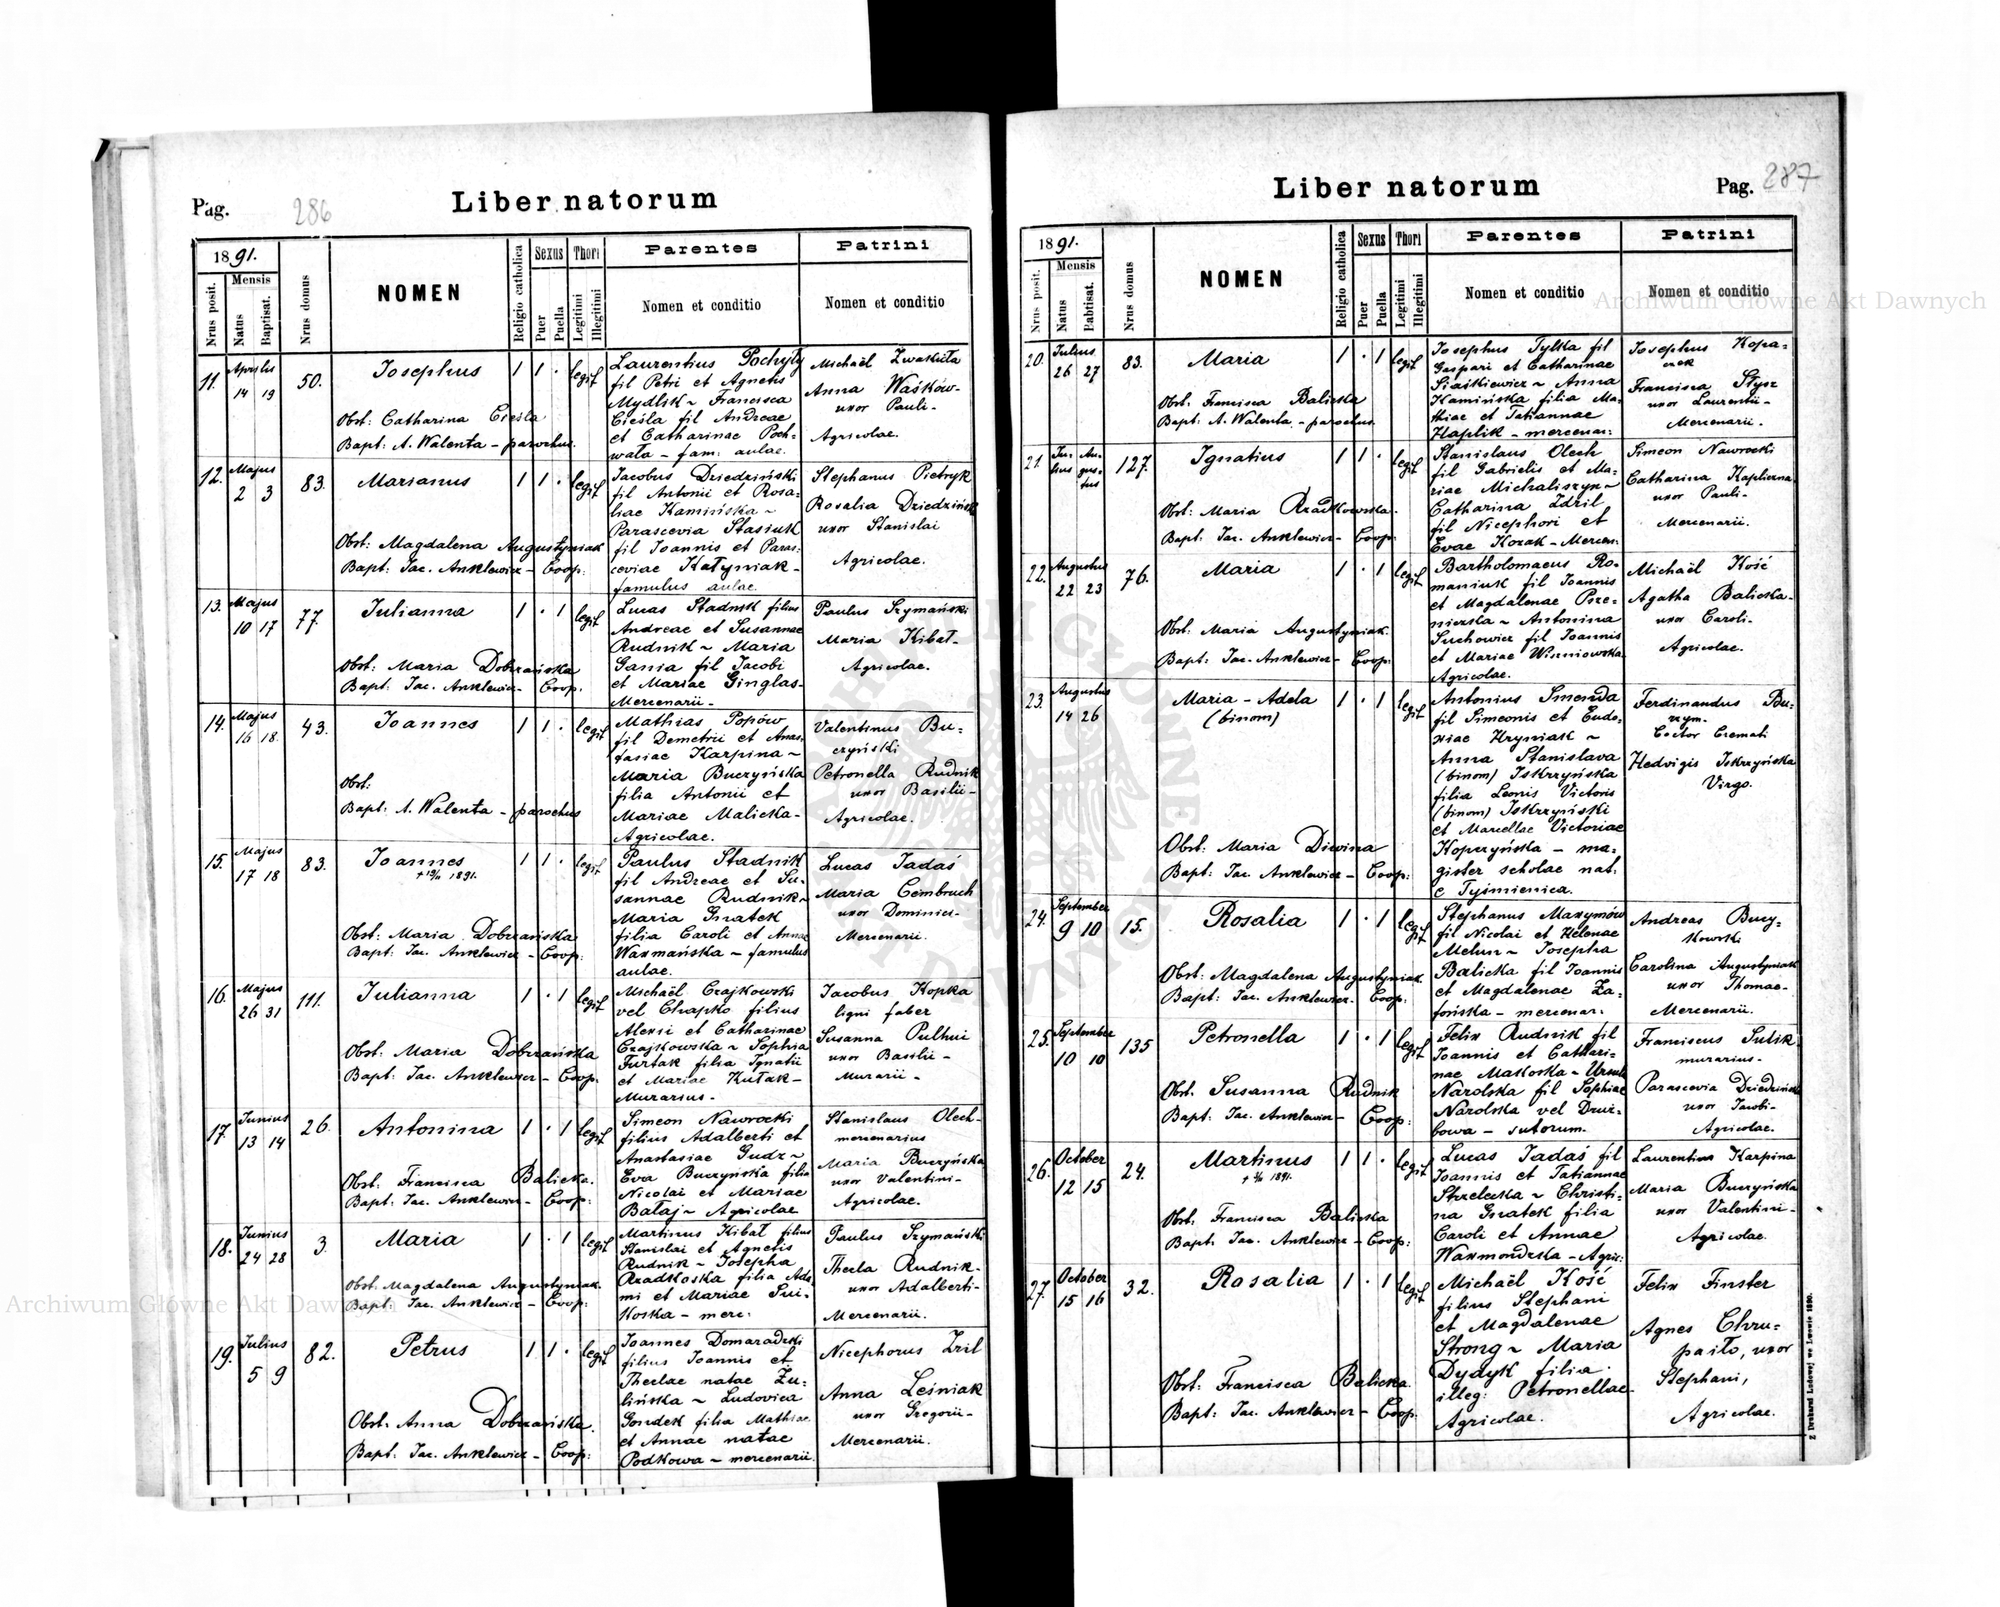 Pag. 286
Liber natorum
1891.
Nrus posit.
Mensis
Natus
Baptisat.
Nrus domus
NOMEN
Religio catholica
Sexus
Puer
Puella
Thori
Legitimi
Illegitimi
Parentes
Nomen et conditio
Patrini
Nomen et conditio
11. Aprilis 14 19 50. Josephus 1 1 · legit
Obst: Catharina Cieśla
Bapt: A. Walenta - parochus.
Laurentius Pochyły
fil Petri et Agnetis
Mydlik ~ Francisca
Cieśla fil Andreae
et Catharinae Poch=
wała - fam: aulae.
Michaël Zwakuła
Anna Waśkow-
uxor Pauli -
Agricolae.
12. Majus 2 3 83. Marianus 1 1 · legit
Obst: Magdalena Augustyniak
Bapt: Jac. Anklewicz - Coop:
Jacobus Dziedziński
fil Antonii et Rosa=
liae Kamińska ~
Parascevia Stasiuk
fil Joannis et Paras=
ceviae Katyniak -
famulus aulae.
Stephanus Pietryk
Rosalia Dziedzińsk
uxor Stanislai
Agricolae.
13. Majus 10 17 77. Julianna 1 · 1 legit
Obst: Maria Dobrzańska
Bapt: Jac. Anklewicz - Coop.
Lucas Stadnik filius
Andreae et Susannae
Rudnik ~ Maria
Gania fil Jacobi
et Mariae Ginglas-
Mercenarii -
Paulus Szymański
Maria Kibał-
Agricolae.
14. Majus 16 18. 43. Joannes 1 1 · legit
Obst:
Bapt: A. Walenta - parochus
Mathias Popów
fil Demetrii et Anas=
tasiae Karpina ~
Maria Buczyńska
filia Antonii et
Mariae Malicka -
Agricolae.
Valentinus Bu=
czyński
Petronella Rudnik
uxor Basilii -
Agricolae.
15. Majus 17 18 83. Joannes 1 1 · legit
Obst: Maria Dobrzańska
Bapt: Jac. Anklewicz - Coop:
Paulus Stadnik
fil Andreae et Su=
sannae Rudnik ~
Maria Gnatek
filia Caroli et Annae
Waxmańska - famulus
aulae.
Lucas Tadaś
Maria Cembruch
uxor Dominici -
Mercenarii.
16. Majus 26 31 111. Julianna 1 · 1 legit
Obst: Maria Dobrzańska
Bapt: Jac. Anklewicz - Coop:
Michaël Czajkowski
vel Chapko filius
Alexii et Catharinae
Czajkowska ~ Sophia
Furtak filia Ignatii
et Mariae Kułak -
Murarius -
Jacobus Kopka
ligni faber
Susanna Pulhui
uxor Basilii -
Murarii -
17. Junius 13 14 26. Antonina 1 · 1 legit
Obst: Francisca Balicka.
Bapt: Jac. Anklewicz - Coop:
Simeon Nawrocki
filius Adalberti et
Anastasiae Gudz ~
Eva Buczyńska filia
Nicolai et Mariae
Bałaj ~ Agricolae
Stanislaus Olech -
mercenarius
Maria Buczyńska
uxor Valentini -
Agricolae.
18. Junius 24 28 3. Maria 1 · 1 legit
Obst. Magdalena Augustyniak.
Bapt: Jac. Anklewicz - Coop:
Martinus Kibał filius
Stanislai et Agnetis
Rudnik ~ Josepha
Rzadkoska filia Ada
mi et Mariae Sui=
koska - merc:
Paulus Szymański
Thecla Rudnik -
uxor Adalberti -
Mercenarii.
19. Julius 5 9 82. Petrus 1 1 · legit
Obst: Anna Dobrzańska.
Bapt: Jac. Anklewicz - Coop:
Joannes Domaradzki
filius Joannis et
Theclae natae Zu=
lińska ~ Ludovica
Gondek filia Mathiae
et Annae natae
Podkowa ~ mercenarii.
Nicephorus Zril
Anna Leśniak
uxor Gregorii -
Mercenarii.
Liber natorum
Pag. 287
1891.
Nrus posit.
Mensis
Natus
Babtisat.
Nrus domus
NOMEN
Religio catholica
Sexus
Puer
Puella
Thori
Legitimi
Illegitimi
Parentes
Nomen et conditio
Patrini
Nomen et conditio
20. Julius 26 27 83. Maria 1 · 1 legit
Obst: Francisca Balicka
Bapt: A. Walenta - parochus
Josephus Tylka fil
Gaspari et Catharinae
Siaśkiewicz ~ Anna
Kamińska filia Ma=
thiae et Tatiannae
Haplik - mercenar:
Josephus Kopa=
czek
Francisca Stysz
uxor Laurentii -
Mercenarii.
21. Ju- Au-
lius gus-
tus
127. Ignatius 1 1 · legit
Obst: Maria Rzadkowska.
Bapt: Jac. Anklewicz - Coop:
Stanislaus Olech
fil Gabrielis et Ma=
riae Michaliszyn ~
Catharina Zdril
fil Nicephori et
Evae Kozak - Mercen:
Simeon Nawrocki
Catharina Kapliczna
uxor Pauli -
Mercenarii.
22. Augustus 22 23 76. Maria 1 · 1 legit
Obst: Maria Augustyniak.
Bapt: Jac. Anklewicz - Coop:
Bartholomaeus Ro=
maniuk fil Joannis
et Magdalenae Psze=
niczka ~ Antonina
Suchowicz fil Joannis
et Mariae Wiszniowska
Agricolae.
Michaël Kość
Agatha Balicka -
uxor Caroli -
Agricolae.
23. Augustus 14 26 Maria - Adela 1 · 1 legit
(binom)
Obst: Maria Diwina
Bapt: Jac. Anklewicz - Coop:
Antonius Smenda
fil Simeonis et Eudo=
xiae Hryniak ~
Anna Stanislava
(binom) Iskrzyńska
filia Leonis Victoris
(binom) Iskrzyński
et Marcellae Victoriae
Kopczyńska - ma=
gister scholae nat.
e Tyśmienica.
Ferdinandus Bu=
rzym.
Coctor Cremati
Hedvigis Iskrzyńska
Virgo.
24. September 9 10 15. Rosalia 1 · 1 legit
Obst: Magdalena Augustyniak.
Bapt: Jac. Anklewicz - Coop:
Stephanus Maxymów
fil Nicolai et Helenae
Melun ~ Josepha
Balicka fil Joannis
et Magdalenae Za=
tońska - mercenar.
Andreas Bucy=
kowski
Carolina Augustyniak
uxor Thomae -
Mercenarii.
25. September 10 10 135 Petronella 1 · 1 legit
Obst: Susanna Rudnik
Bapt: Jac. Anklewicz - Coop:
Felix Rudnik fil
Joannis et Cathari=
nae Makoska ~ Ursula
Narolska fil Sophiae
Narolska vel Druz=
bowa - sutorum.
Franciscus Sulik
murarius -
Parascevia Dziedzińska
uxor Jacobi -
Agricolae.
26. October 12 15 24. Martinus 1 1 · legit
Obst: Francisca Balicka
Bapt. Jac. Anklewicz - Coop:
Lucas Tadaś fil
Joannis et Tatiannae
Strzelecka ~ Christi=
na Gnatek filia
Caroli et Annae
Waxmondzka - Agric:
Laurentius Karpina
Maria Buczyńska
uxor Valentini -
Agricolae.
27. October 15 16 32. Rosalia 1 · 1 legit
Obst: Francisca Balicka.
Bapt: Jac. Anklewicz - Coop:
Michaël Kość
filius Stephani
et Magdalenae
Strong ~ Maria
Dydyk filia
illeg: Petronellae
Agricolae.
Felix Finster
Agnes Chru=
paiło, uxor
Stephani,
Agricolae.
Z Drukarni Ludowej we Lwowie 1890.
Archiwum Główne Akt Dawnych
Archiwum Główne Akt Dawnych